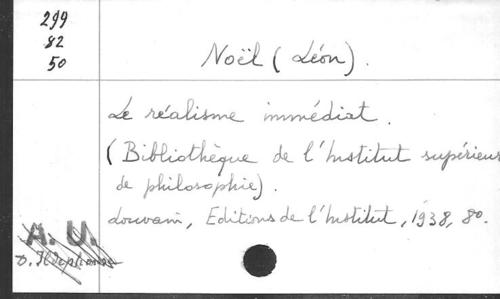 299
82
50
Noël (Léon).
Le réalisme immédiat.
(Bibliothèque de l'Institut supérieur
de philosophie).
Louvain, Editions de l'Institut, 1938, 8o.
A. U.